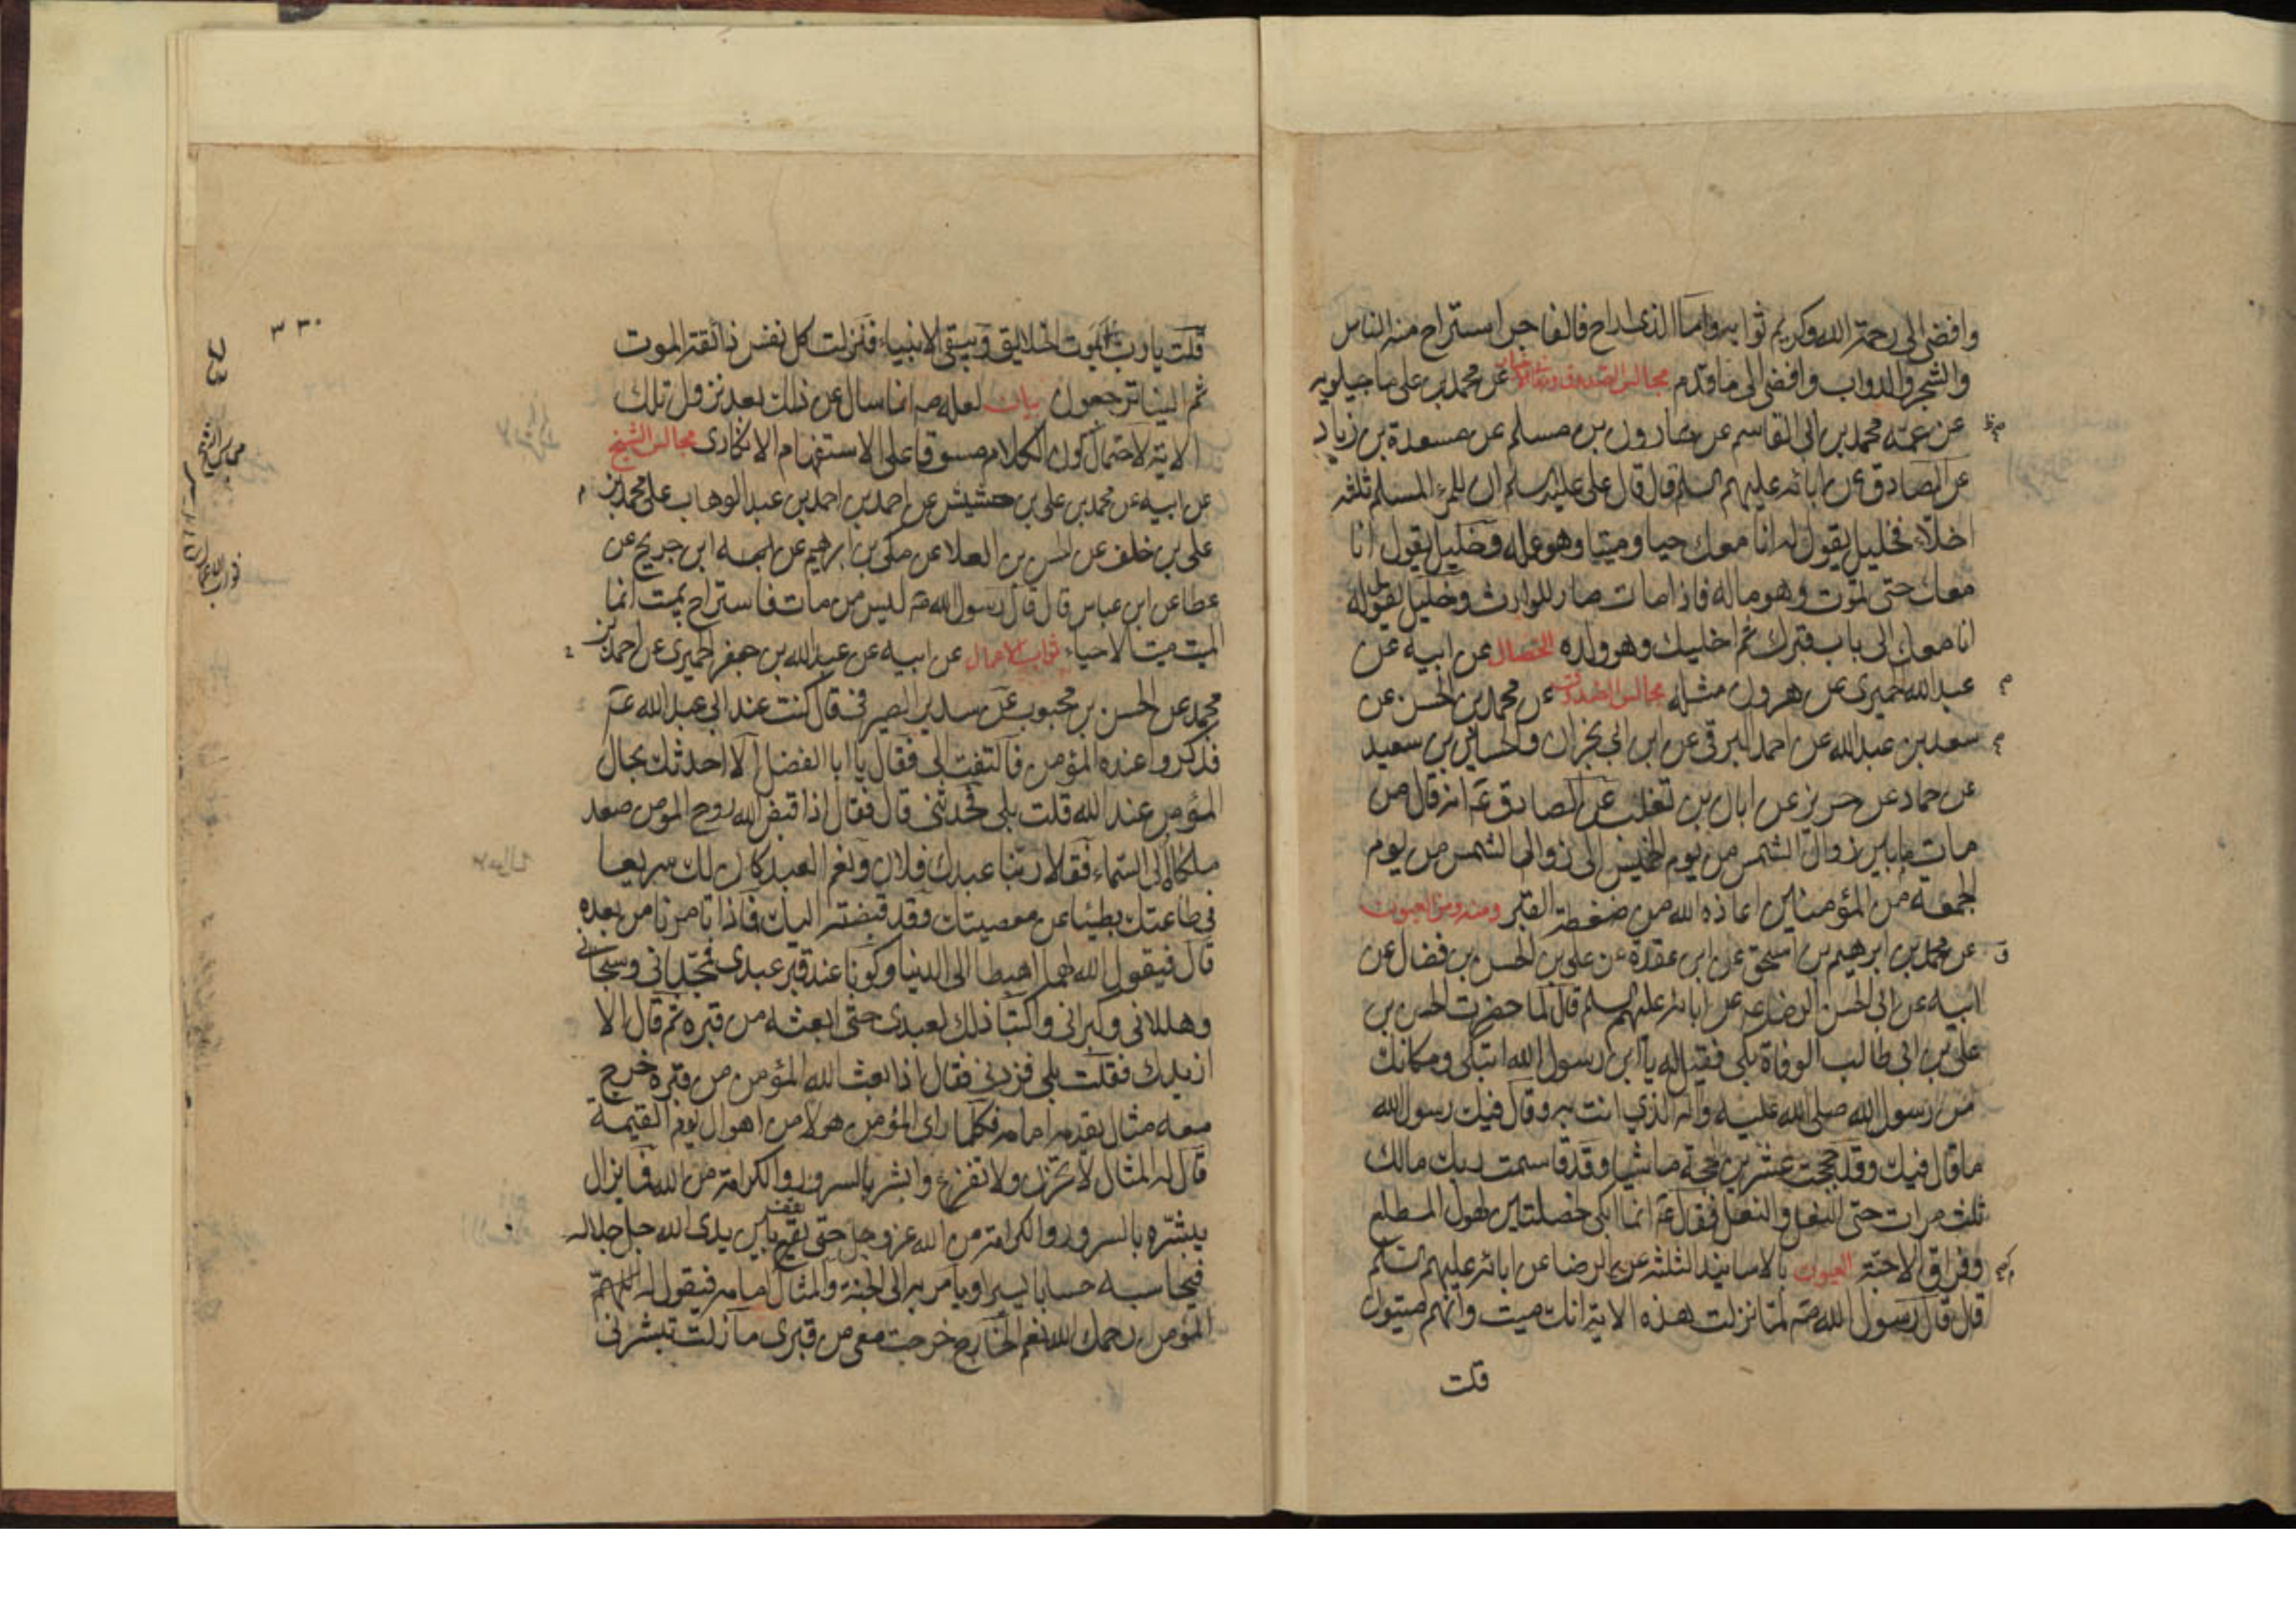 وافضى الى رحمة الله وكريم ثوابه واما الذى اراح فالفاجر استراح منه الناس
والشجر والدواب وافضى الى ما قدم مجالس الصدوق عن محمد بن على ماجيلويه
عن عمه محمد بن ابى القاسم عن هارون بن مسلم عن مسعدة بن زياد
عن الصادق عن ابائه عليهم السلم قال قال على عليه السلم ان للمرء المسلم ثلثه
اخلاء فخليل يقول له انا معك حيا وميتا وهو عمله وخليل يقول انا
معك حتى تموت وهو ماله فاذا مات صار للوارث وخليل يقول له
انا معك الى باب قبرك ثم اخليك وهو ولده الخصال عن ابيه عن
عبد الله الحميرى عن هرون مثله مجالس الصدوق عن محمد بن الحسن عن
سعد بن عبد الله عن احمد البرقى عن ابن ابى نجران والحسين بن سعيد
عن حماد عن حريز عن ابان بن تغلب عن الصادق ع انه قال من
مات ما بين زوال الشمس من يوم الخميس الى زوال الشمس من يوم
الجمعة من المؤمنين اعاذه الله من ضغطة القبر ومنه ومن العيون
عن محمد بن ابرهيم بن اسحق عن ابن عقدة عن على بن الحسن بن فضال عن
ابيه عن ابى الحسن الرضا ع عن ابائه عليهم السلم قال لما حضرت الحسن بن
على بن ابى طالب الوفاة بكى فقيل له يا ابن رسول الله اتبكى ومكانك
من رسول الله صلى الله عليه واله الذي انت به وقال فيك رسول الله
ما قال فيك وقد حججت عشرين حجة ماشيا وقد قاسمت ربك مالك
ثلث مرات حتى النعل والنعل فقال ع انما ابكى لخصلتين لهول المطلع
وفراق الاحبة العيون بالاسانيد الثلثة عن الرضا عن ابائه عليهم السلم
قال قال رسول الله ص لما نزلت هذه الاية انك ميت وانهم ميتون
قلت
٣٣٠
قلت يا رب ايموت الخلايق ويبقى الانبياء فنزلت كل نفس ذائقة الموت
ثم الينا ترجعون بيان لعله ص انما سال عن ذلك بعد نزول تلك
الاية لاحتمال كون الكلام مسوقا على الاستفهام الانكارى مجالس الشيخ
عن ابيه عن محمد بن على بن حشيش عن احمد بن احمد بن عبد الوهاب على محمد بن
على بن خلف عن الحسن بن العلا عن مكى بن ابرهيم عن ابن جريح عن
عطا عن ابن عباس قال قال رسول الله ص ليس من مات فاستراح بميت انما
الميت ميت الاحياء ثواب الاعمال عن ابيه عن عبد الله بن جعفر الحميرى عن احمد بن
محمد عن الحسن بن محبوب عن سدير الصيرفى قال كنت عند ابى عبد الله ع
فذكروا عنده المؤمن فالتفت الى فقال يا ابا الفضل الا احدثك بحال
المؤمن عند الله قلت بلى فحدثنى قال فقال اذا قبض الله روح المومن صعد
ملكاه الى السماء فقالا ربنا عبدك فلان ونعم العبد كان لك سريعا
فى طاعتك بطيئا عن معصيتك وقد قبضته اليك فاذا تامرنا من بعده
قال فيقول الله لهما اهبطا الى الدنيا وكونا عند قبر عبدى فمجدانى وسبحانى
وهللانى وكبرانى واكتبا ذلك لعبدى حتى ابعثه من قبره ثم قال الا
ازيدك فقلت بلى فزدنى فقال اذا بعث الله المؤمن من قبره خرج
معه مثال يقدمه امامه فكلما راى المؤمن هولا من اهوال يوم القيمة
قال له المثال لا تحزن ولا تفزع وابشر بالسرور والكرامة من الله فما يزال
يبشره بالسرور والكرامة من الله عز وجل حتى يقف بين يدى الله جل جلاله
فيحاسبه حسابا يسيرا ويامر به الى الجنة والمثال امامه فيقول له
المؤمن رحمك الله نعم الخارج خرجت معى من قبرى ما زلت تبشرنى